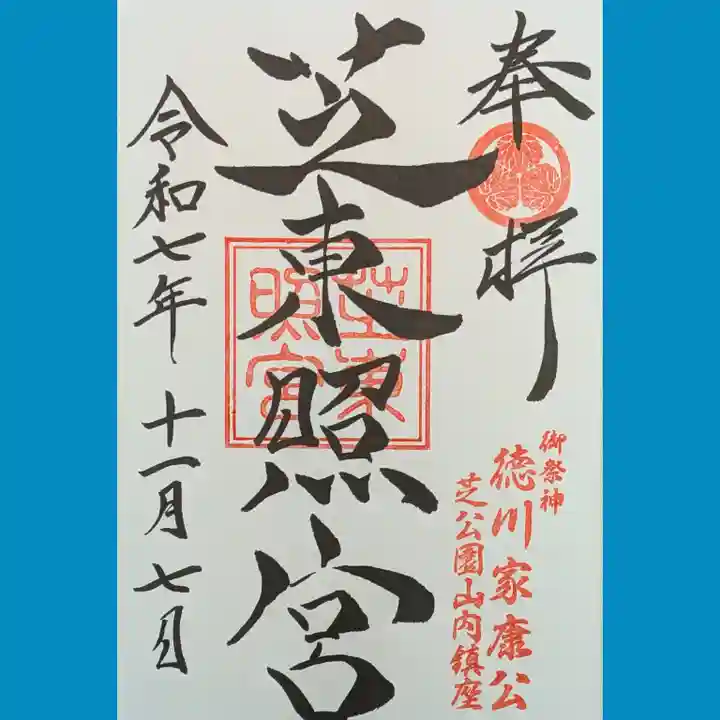 奉拝
御祭神
徳川家康公
芝公園山内鎮座
芝東照宮
芝東照宮
令和七年十一月七日